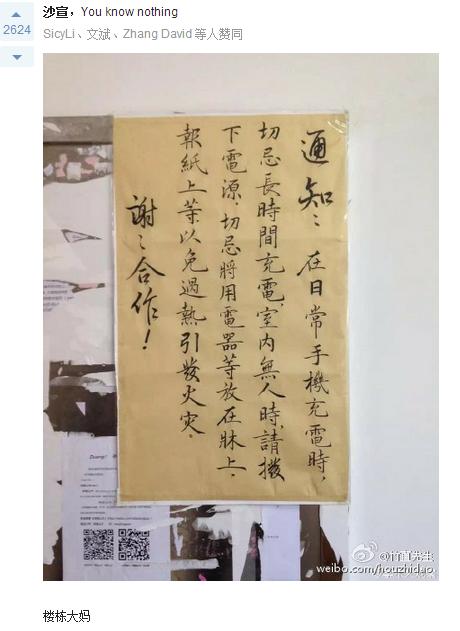 沙宣，You know nothing
2624
SicyLi、文斌、Zhang David 等人赞同
通知：在日常手機充電時，
切忌長時間充電，室内無人時，請撥
下電源。切忌將用電器等放在牀上、
報紙上等以免過熱引發火灾。
謝〻合作！
Duang!
weibo.com/houzhiduo
楼栋大妈